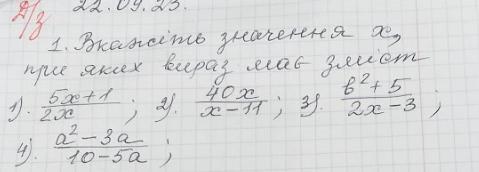 Д/з 22.09.23.
1. Вкажіть значення x,
при яких вираз має зміст
1). \frac{5x+1}{2x}; 2). \frac{40x}{x-11}; 3). \frac{b²+5}{2x-3};
4). \frac{a²-3a}{10-5a};